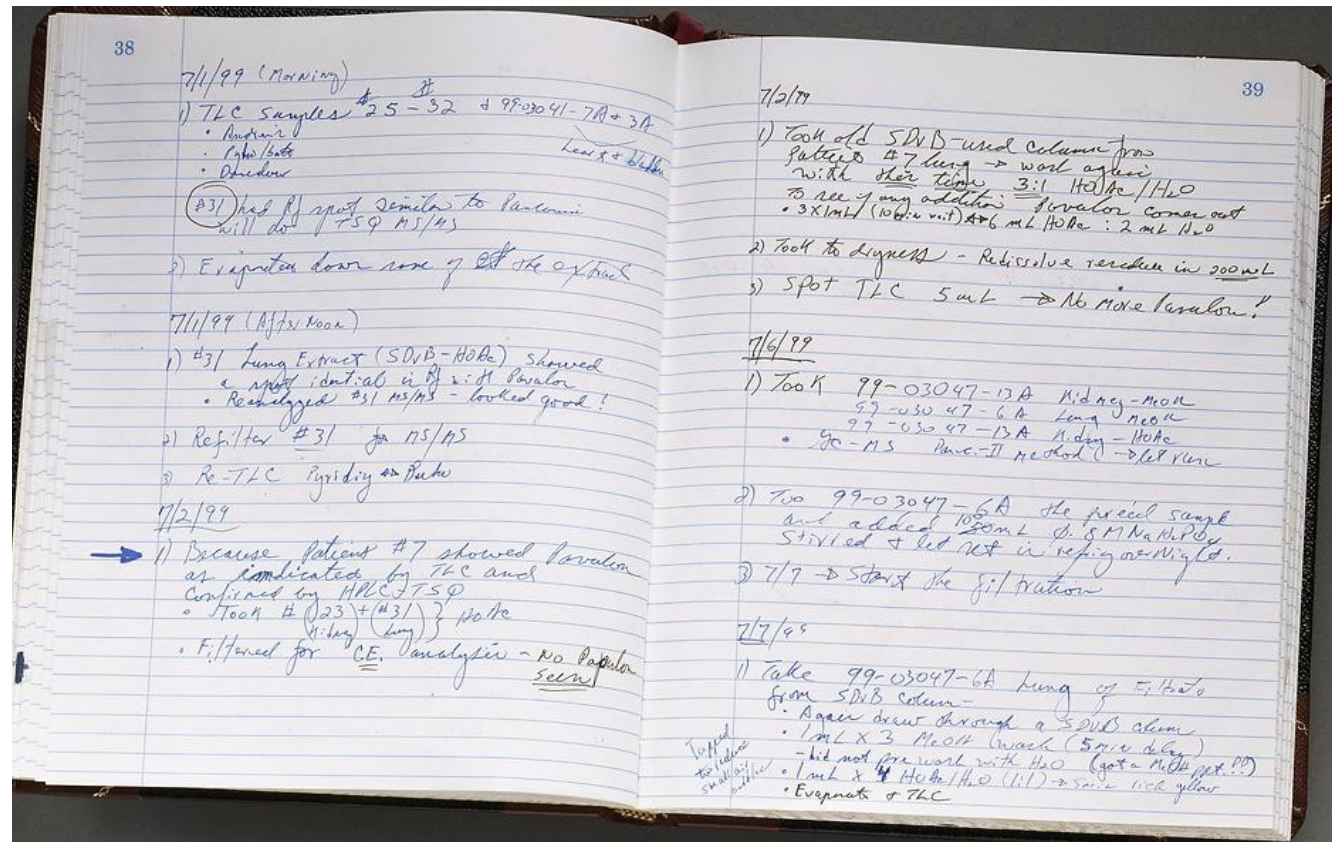 38
7/1/99 (Morning)
1) TLC Samples #25 - #32 & 99-03041-7A & 3A
Heart & bladder
#31 had Rf spot similar to
will do TSQ MS/MS
2) Evaporates down some of the extract
7/1/99 (After Noon)
1) #31 Lung Extract (SDVB-HOAc) showed
a spot idential in Rf with Pavalon
• Reanalyzed #31 MS/MS - looked good!
2) Refilter #31 for MS/MS
3) Re-TLC
7/2/99
1) Because Patient #7 showed Pavalon
as indicated by TLC and
confirmed by HPLC-TSQ
• Took # (23) + (#31) } HOAc
Kidney Lung
• Filtered for C.E. analysis - No Pavalon
Seen
39
7/2/99
1) Took old SDVB-used column from
Patient #7 lung → wash again
with time 3:1 HOAc/H2O
to see if any addition Pavalon comes out
• 3X1mL (10min wait) 6 mL HOAc : 2 mL H2O
2) Took to dryness - Redissolve residue in 200mL
3) Spot TLC 5mL → No More Pavalon!!
7/6/99
1) Took 99-03047-13A Kidney-MeOH
99-03047-6A Lung MeOH
99-03047-13A Kidney-HOAc
• GC-MS Panc.-II method → let run
2) Too 99-03047-6A the sample
and added mL 0.8M
Stirred & let set in refrig overNight.
3) 7/7 → Start the filtration
7/7/99
1) Take 99-03047-6A Lung of
from SDVB Column-
• Again draw through a SDVB
• 1mL X 3 MeOH wash (5min delay)
-did not pre wash with H2O (got a MeOH ppt.!!)
• 1mL X 4 HOAc/H2O (1:1) → 5min rich yellow
• Evaporate & TLC
Tapped
to reduce
small air